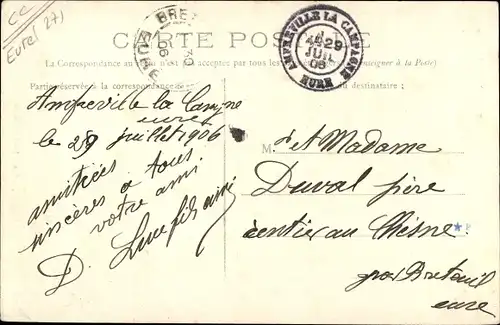 CC
Eure(27)
BRET
EURE
30
06
AMFREVILLE LA CAMPAGNE
29
JUIL
06
EURE
CARTE POSTALE
La Correspondance au est pas acceptée par tous les (Se renseigner à la Poste)
Partie réservée à la correspondance
du destinataire;
Amfreville la Campagne
eure
le 29 juillet 1906
amitiées
sincères à tous
votre ami
D.
M. et Madame
Duval père
rentier au Chesne
par Breteuil
eure